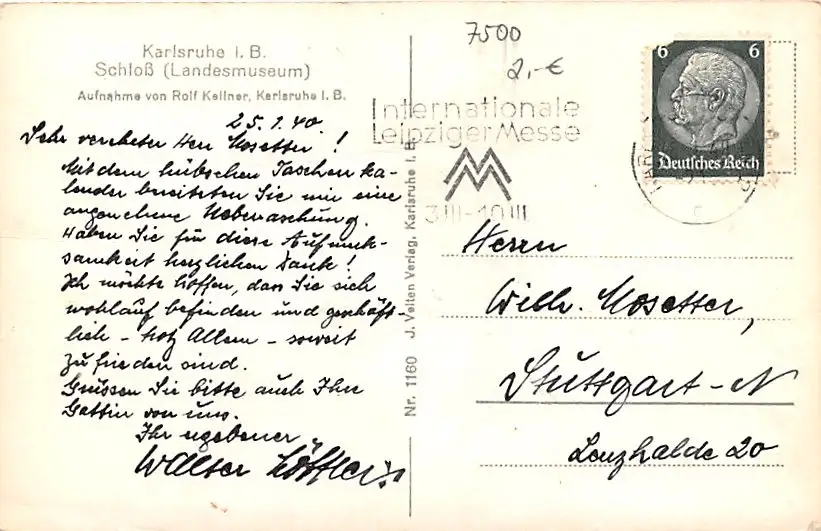 Karlsruhe i. B.
Schloß (Landesmuseum)
Aufnahme von Rolf Kellner, Karlsruhe i. B.
25.1.40.
Sehr verehrter Herr Mosetter!
Mit dem hübschen Taschenka-
lender bereiteten Sie mir eine
angenehme Ueberraschung.
Haben Sie für diese Aufmerk-
samkeit herzlichen Dank!
Ich möchte hoffen, dass Sie sich
wohlauf befinden und geschäft-
lich - trotz Allem - soweit
zufrieden sind.
Grüssen Sie bitte auch Ihre
Gattin von uns.
Ihr ergebener
Walter Löffler
Nr. 1160 J. Velten Verlag, Karlsruhe i. B.
7500
2,-€
Internationale
Leipziger Messe
MM
3.III-10.III
6 6
Deutsches Reich
c
Herrn
Wilh. Mosetter,
Stuttgart-N
Lenzhalde 20